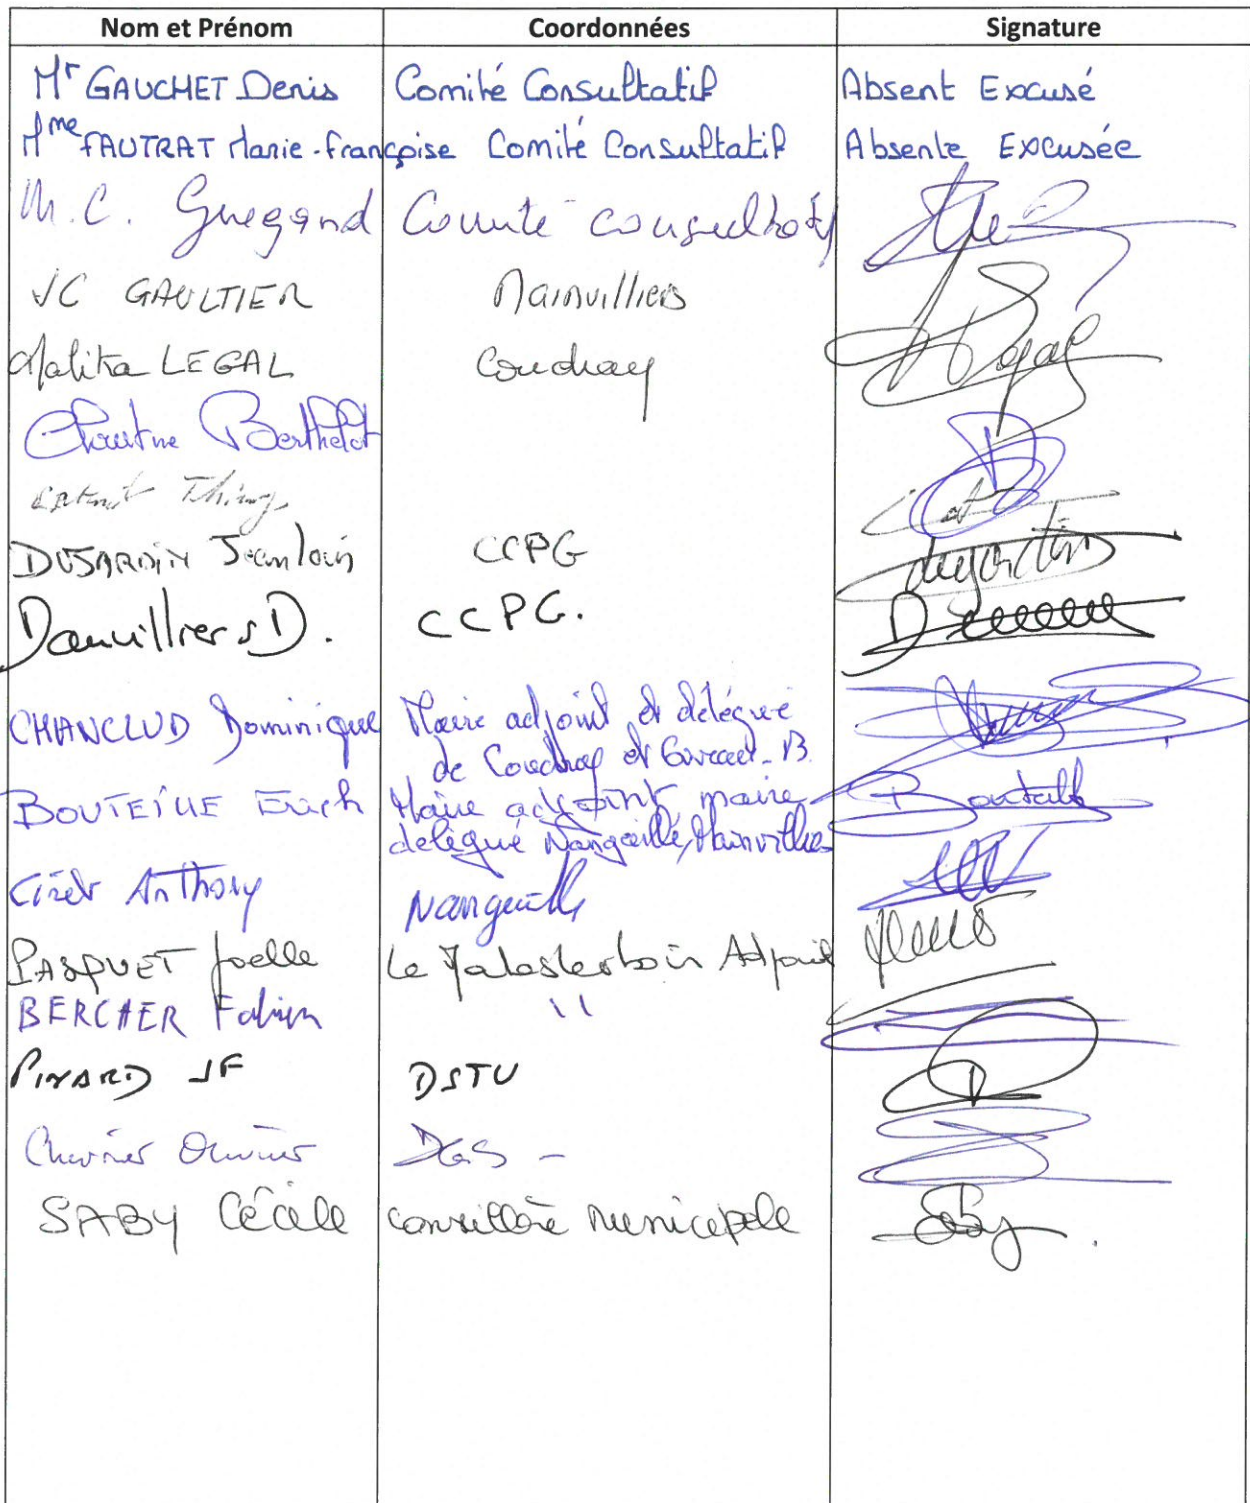 Nom et Prénom Coordonnées Signature
Mr GAUCHET Denis Comité Consultatif Absent Excusé
Mme FAUTRAT Marie-Françoise Comité Consultatif Absente Excusée
M.C. Guegand Comité consultatif
JC GAULTIER Mainvilliers
Malika LEGAL Coudray Legal
Christine Berthelot
Thierry
DUJARDIN Jean louis CCPG dujardin
Danvilliers D. CCPG.
CHANCLUD Dominique Maire adjoint et délégué
de Coudray et
BOUTEILLE Erich Maire adjoint maire
délégué Nangeville, Mainvilliers
Anthony Nangeville
PASQUET Joelle Le Malesherbois Adjoint
BERCHER Fabien "
PINARD JF DSTU
Olivier DGS -
SABY Cécile conseillère municipale Saby